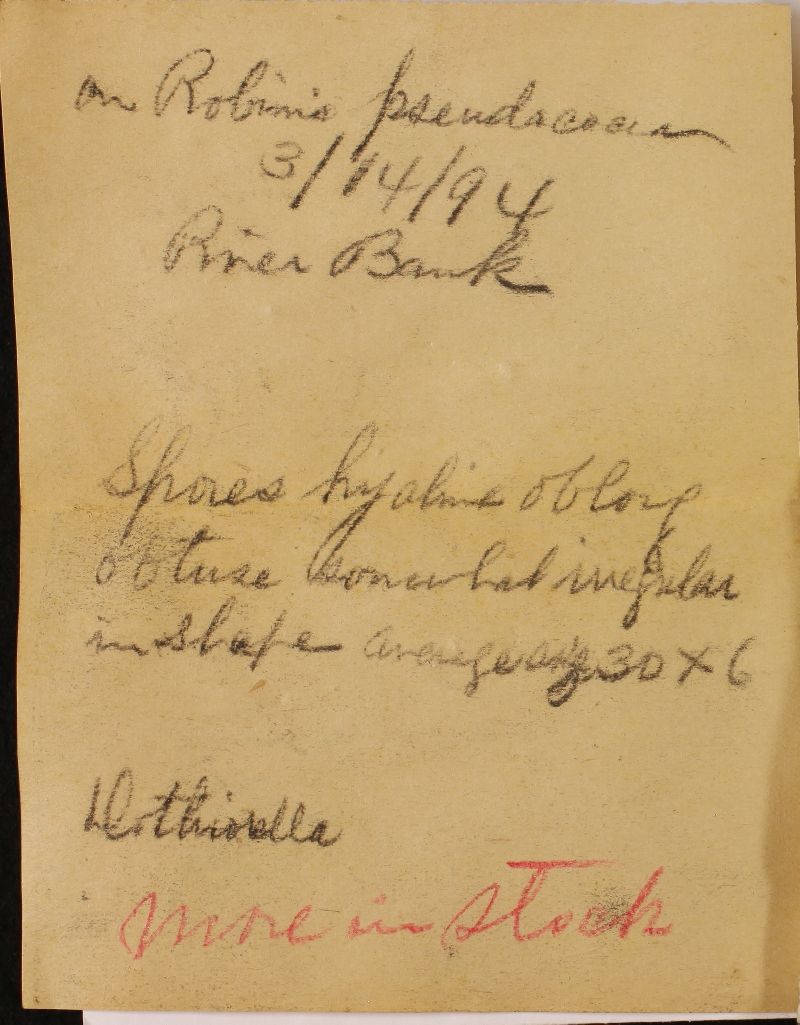 on Robinia pseudacacia
3/14/94
River Bank
Spores hyaline oblong
obtuse somewhat irregular
in shape average 30 × 6
Dothiorella
more in stock